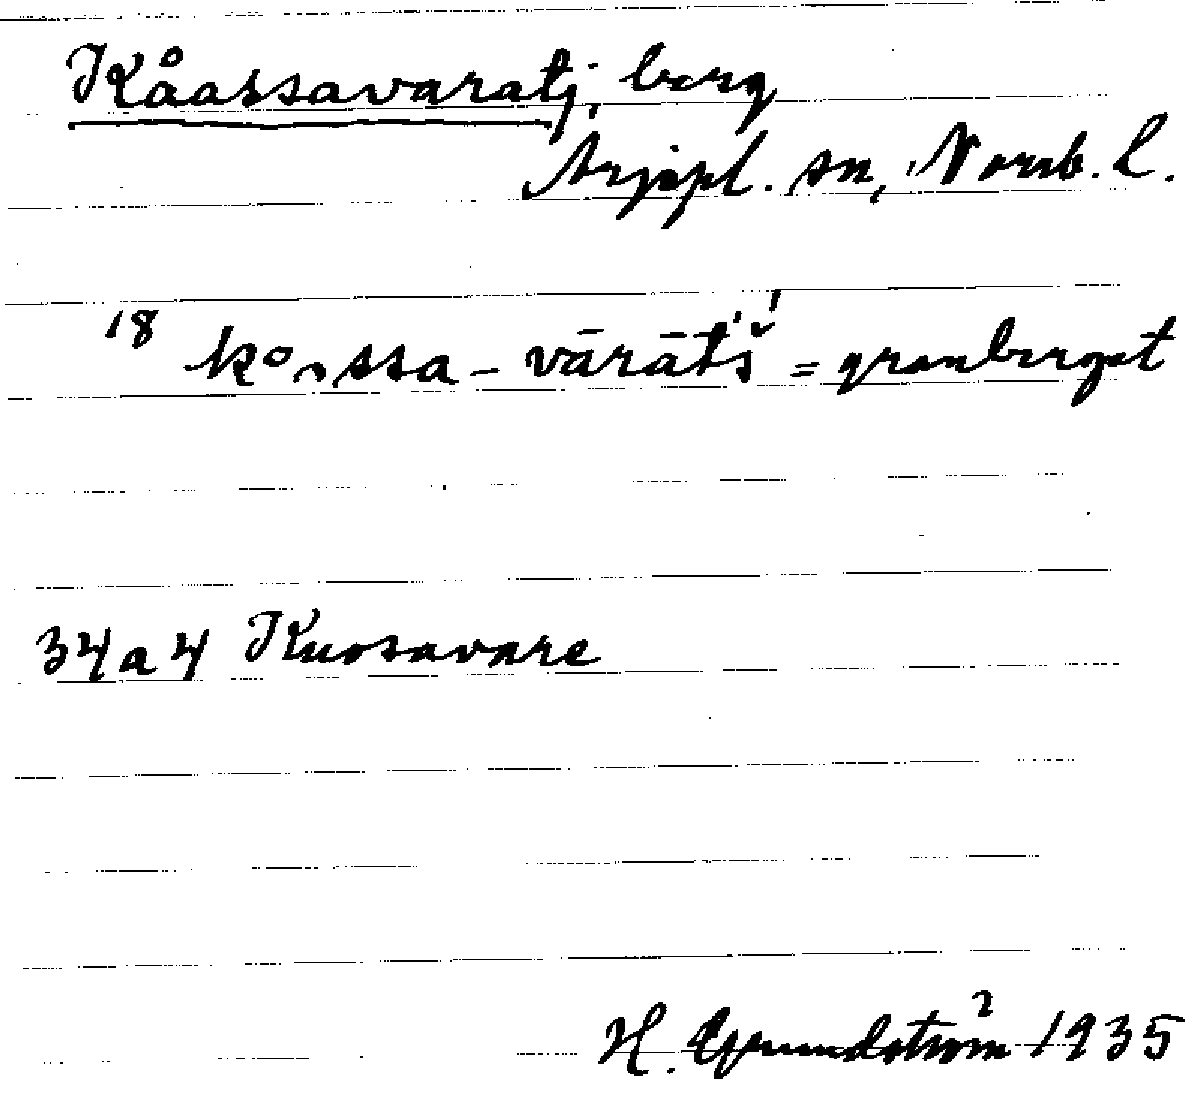 Kåassavaratj, berg
Arjepl. sn, Norrb. l.
18 ko̯ssa-vārāt́š́ = granberget
34a4 Kuosavare
H. Grundström 1935